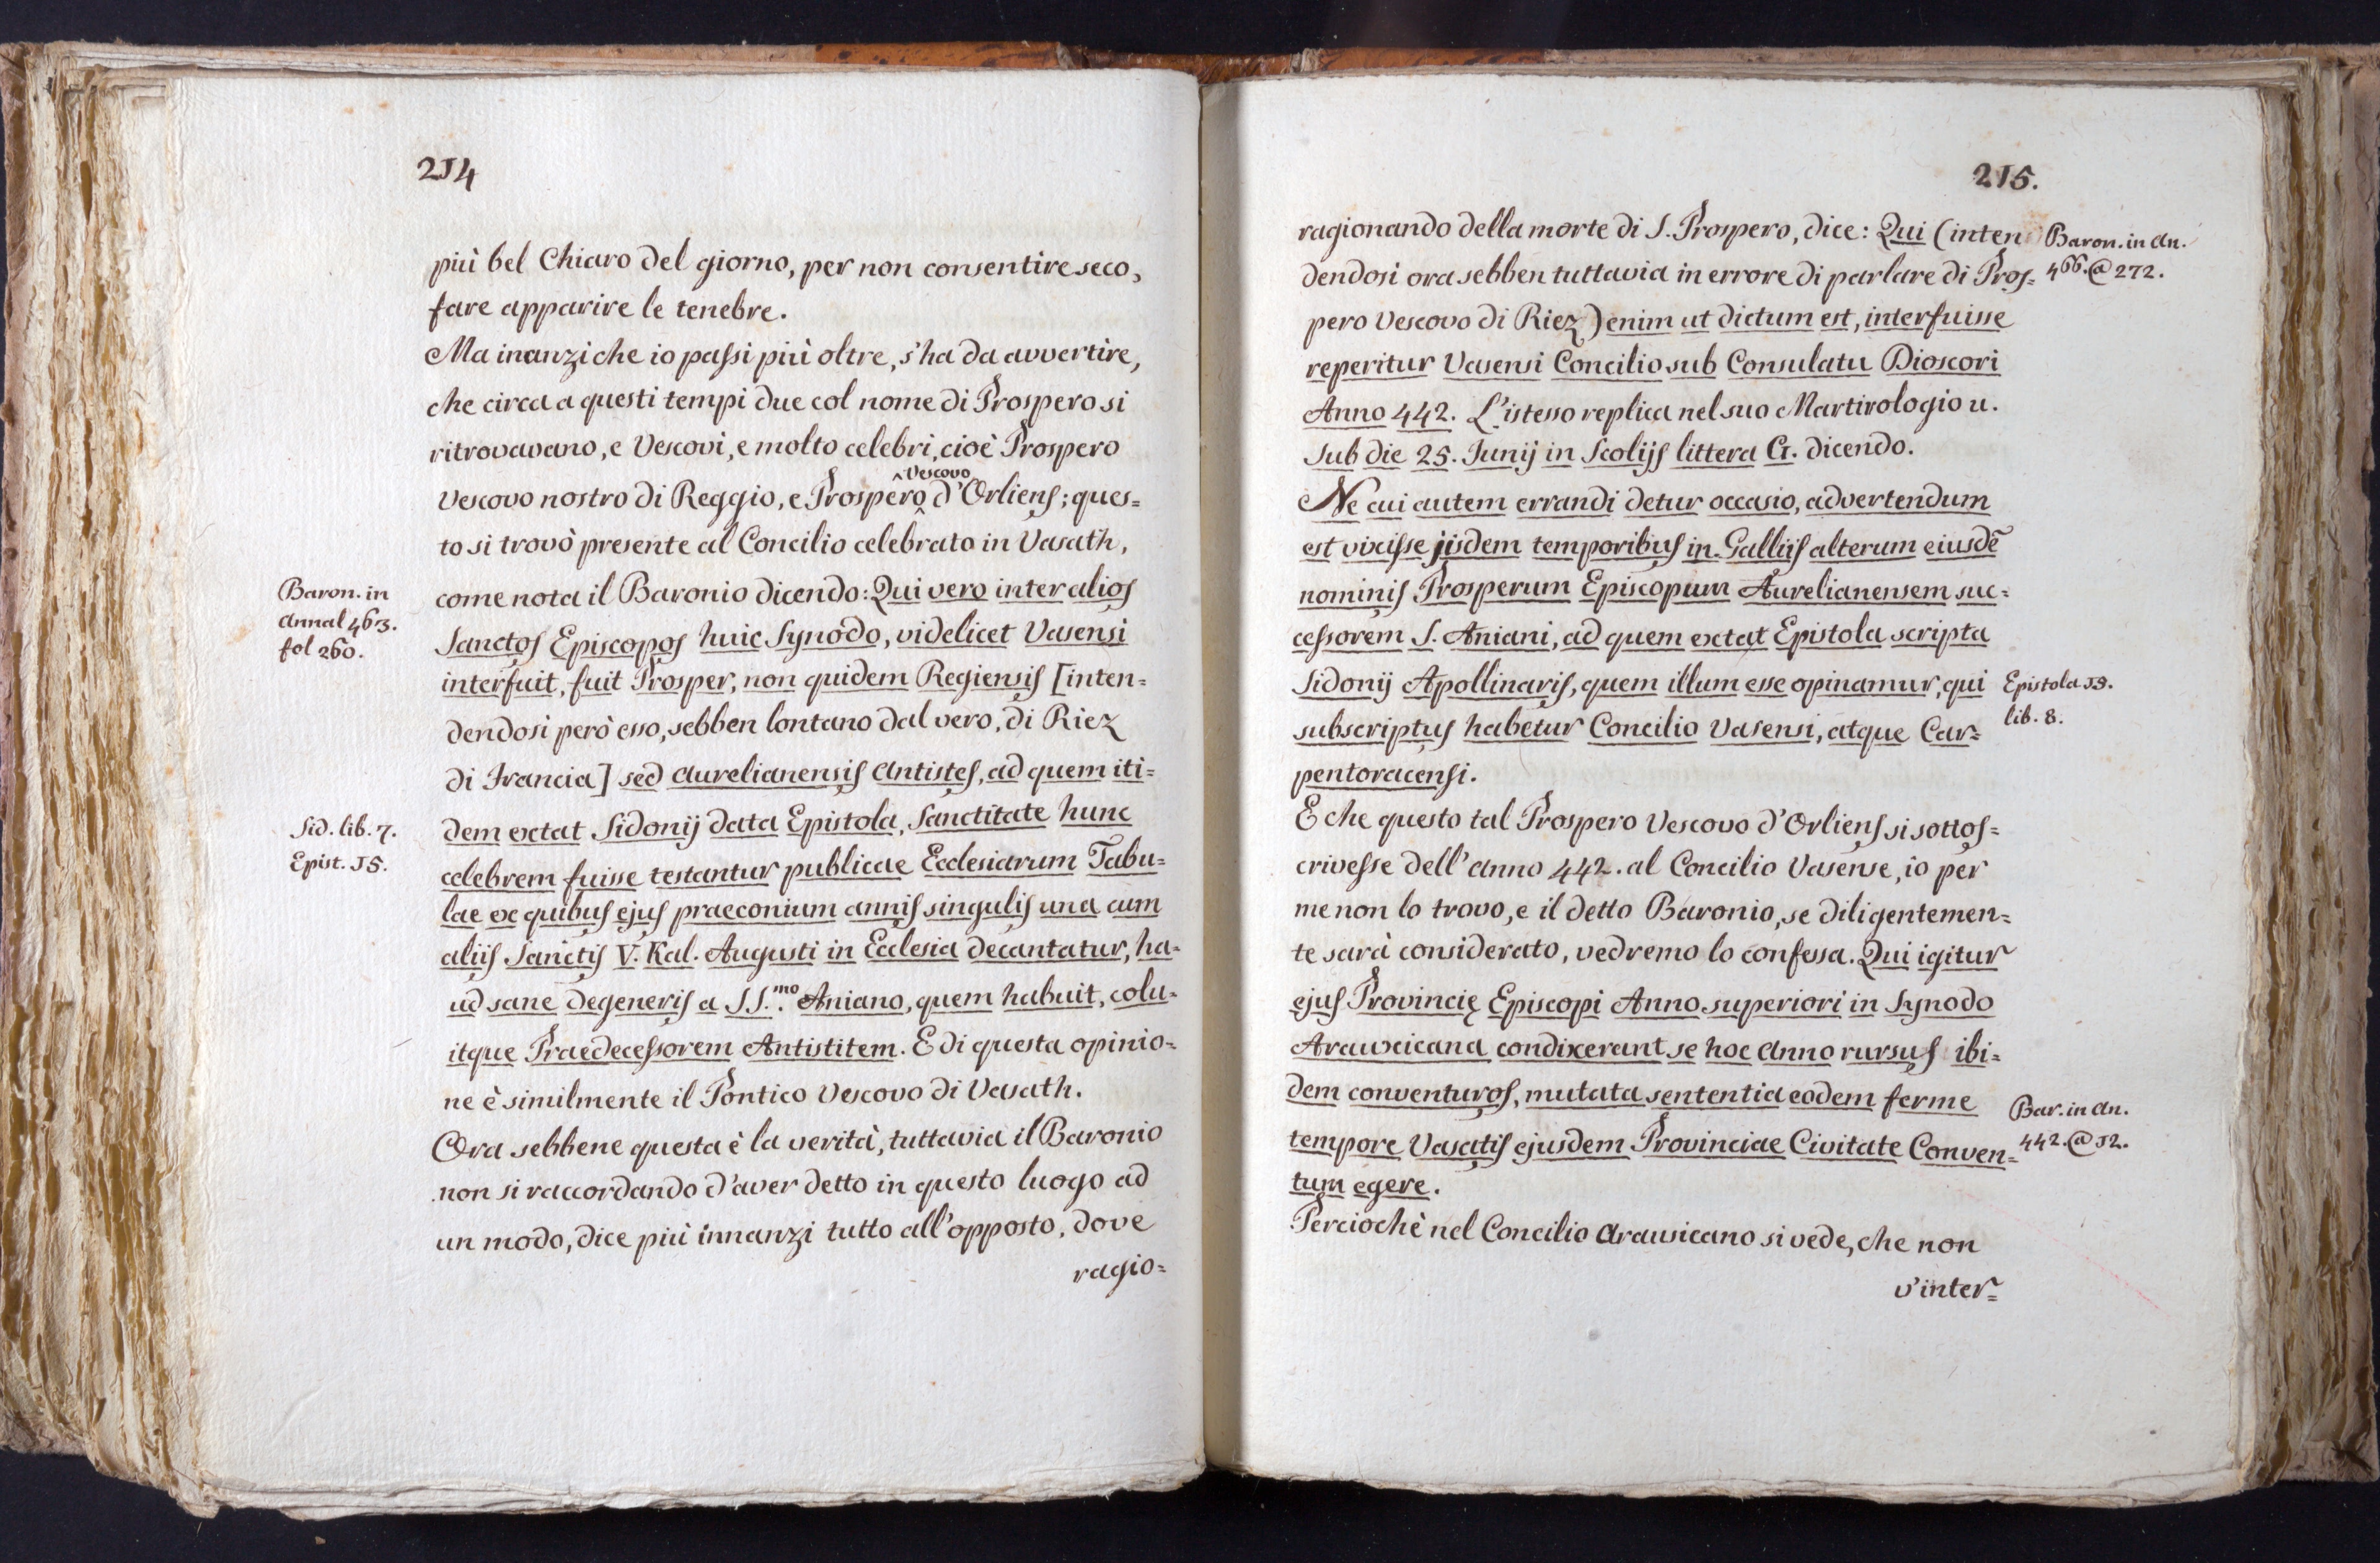 214
più bel Chiaro del giorno, per non consentire seco,
fare apparire le tenebre.
Ma inanzi che io passi più oltre, s'ha da avvertire,
che circa a questi tempi due col nome di Prospero si
ritrovavano, e Vescovi, e molto celebri, cioè Prospero
^Vescovo
Vescovo nostro di Reggio, e Prospero^ d'Orliens; ques=
to si trovò presente al Concilio celebrato in Vasath,
Baron. in
Annal 463.
fol 260.
come nota il Baronio dicendo: Qui vero inter alios
Sanctos Episcopos huic Synodo, videlicet Vasensi
interfuit, fuit Prosper, non quidem Regiensis [inten=
dendosi però esso, sebben lontano dal vero, di Riez
di Francia] sed Aurelianensis Antistes, ad quem iti=
Sid. lib. 7.
Epist. 15.
dem extat Sidonij data Epistola, Sanctitate hunc
celebrem fuisse testantur publicae Ecclesiarum Tabu=
lae ex quibus ejus praeconium annis singulis una cum
aliis Sanctis V. Kal. Augusti in Ecclesia decantatur, ha=
ud sane degeneris a S.S.mo Aniano, quem habuit, colu=
itque Praedecessorem Antistitem. E di questa opinio=
ne è similmente il Pontico Vescovo di Vasath.
Ora sebbene questa è la verità, tuttavia il Baronio
non si raccordando d'aver detto in questo luogo ad
un modo, dice più innanzi tutto all'opposto, dove
ragio=
215.
ragionando della morte di S. Prospero, dice: Qui (inten
Baron. in An.
466. @ 272.
dendosi ora sebben tuttavia in errore di parlare di Pros=
pero Vescovo di Riez) enim ut dictum est, interfuisse
reperitur Vasensi Concilio sub Consulatu Dioscori
Anno 442. L'istesso replica nel suo Martirologio u.
Sub die 25. Junij in Scolijs littera G. dicendo.
Ne cui autem errandi detur occasio, advertendum
est vixisse jisdem temporibus in Galliis alterum eiusdē
nominis Prosperum Episcopum Aurelianensem suc=
cessorem S. Aniani, ad quem extat Epistola scripta
Sidonij Apollinaris, quem illum esse opinamur, qui
Epistola 15.
lib. 8.
subscriptus habetur Concilio Vasensi, atque Car=
pentoracensi.
E che questo tal Prospero Vescovo d'Orliens si sottos=
crivesse dell'Anno 442. al Concilio Vasense, io per
me non lo trovo, e il detto Baronio, se diligentemen=
te sarà considerato, vedremo lo confessa. Qui igitur
ejus Provincię Episcopi Anno superiori in Synodo
Arauxicana condixerant se hoc Anno rursus ibi=
dem conventuros, mutata sententia eodem ferme
Bar. in An.
442. @ 12.
tempore Vasatis ejusdem Provinciae Civitate Conven=
tum egere.
Perciochè nel Concilio Arausicano si vede, che non
v'inter=